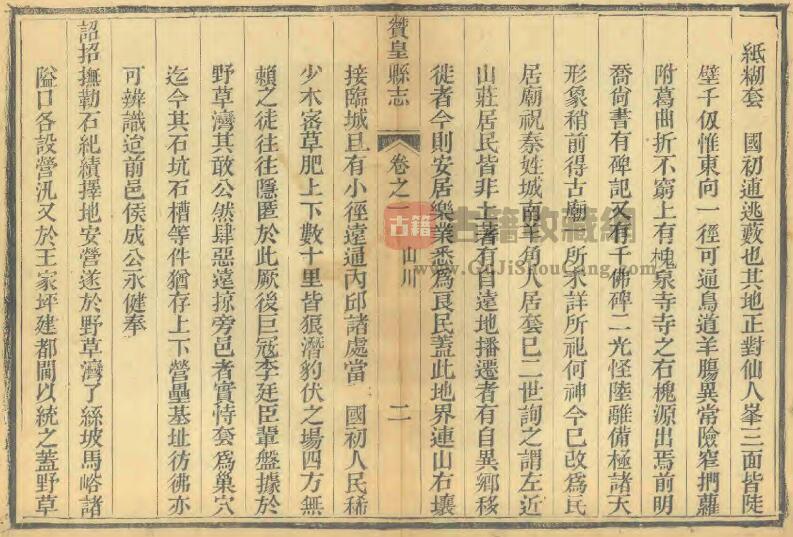 紙糊套　國初逋逃藪也其地正對仙人峯三面皆陡
壁千仭惟東向一徑可通鳥道羊腸異常險窄捫蘿
附葛曲折不窮上有槐泉寺寺之右槐源出焉前明
喬尙書有碑記又有千佛碑二光怪陸離備極諸天
形象稍前得古廟一所未詳所祀何神今已改爲民
居廟祝秦姓城南羊角人居套巳二世詢之謂左近
山莊居民皆非土著有自遠地播遷者有自異鄉移
徙者今則安居樂業悉爲良民蓋此地界連山右壤
贊皇縣志
卷之一
山川
二
接臨城且有小徑遠通內邱諸處當　國初人民稀
少木密草肥上下數十里皆狼潛豹伏之場四方無
賴之徒往往隱匿於此厥後巨寇李廷臣輩盤據於
野草灣其敢公然肆惡遠掠旁邑者實恃套爲巢穴
迄今其石坑石槽等件猶存上下營壘基址彷彿亦
可辨識迨前邑侯成公永健奉
詔招撫勒石紀績擇地安營遂於野草灣了絲坡馬峪諸
隘口各設營汛又於王家坪建都閫以統之蓋野草
古籍
古籍收藏網
www.GuJiShouCang.com